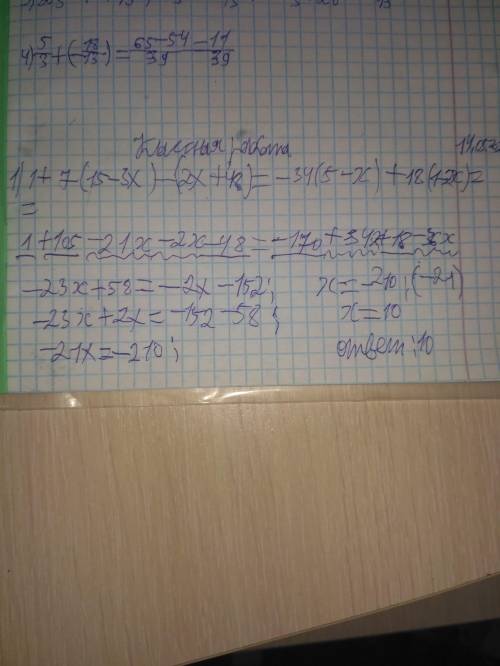 4) 5/3 + (-18/13) = 65-54/39 - 11/39
Классная работа
1) 1 + 7(15-3x) - (2x+48) = -34(5-x) + 18(1-2x) =
=
1 + 105 - 21x - 2x - 48 = -170 + 34x + 18 - 36x
-23x + 58 = -2x - 152; x = -210 : (-21)
-23x + 2x = -152 - 58; x = 10
-21x = -210; ответ: 10